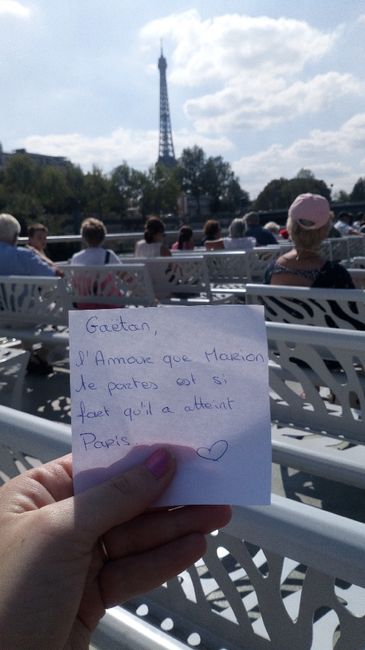 Gaëtan,
l'Amour que Marion
te portes est si
fort qu'il a atteint
Paris...